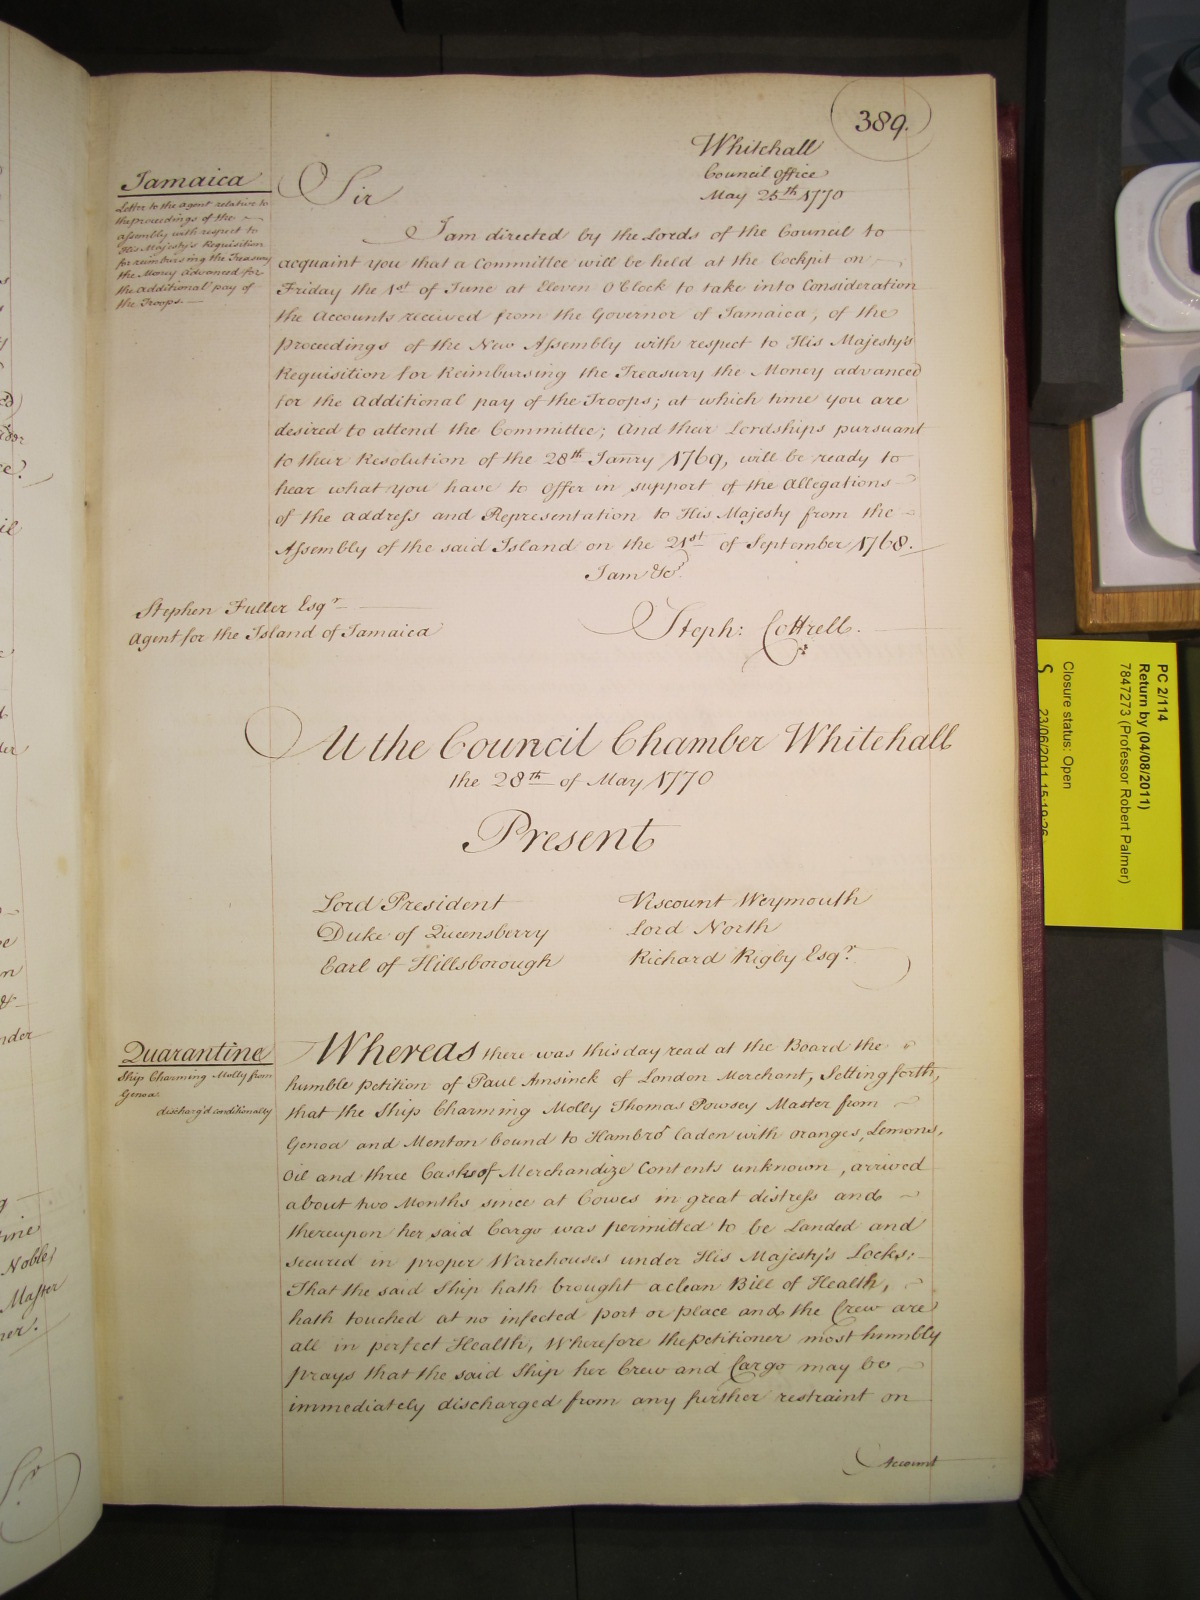 389.
Whitehall
Council office
May 25th 1770
Jamaica
Letter to the Agent relative to
the proceedings of the
Assembly with respect to
His Majesty's Requisition
for reimbursing the Treasury
the Money advanced for
the additional pay of
the Troops.
Sir
I am directed by the Lords of the Council to
acquaint you that a Committee will be held at the Cockpit on
Friday the 1st of June at Eleven O'Clock to take into Consideration
the Accounts received from the Governor of Jamaica, of the
Proceedings of the New Assembly with respect to His Majesty's
Requisition for Reimbursing the Treasury the Money advanced
for the Additional pay of the Troops; at which time you are
desired to attend the Committee; And their Lordships pursuant
to their Resolution of the 28th Janry 1769, will be ready to
hear what you have to Offer in support of the Allegations
of the Address and Representation to His Majesty from the
Assembly of the said Island on the 21st of September 1768.
I am &c.
Stephen Fuller Esqr
Agent for the Island of Jamaica
Steph: Cottrell.
At the Council Chamber Whitehall
the 28th of May 1770
Present
Lord President
Duke of Queensberry
Earl of Hillsborough
Viscount Weymouth
Lord North
Richard Rigby Esqr.
Quarantine
Ship Charming Molly from
Genoa
discharg'd conditionally
Whereas there was this day read at the Board the
humble petition of Paul Amsinck of London Merchant, Setting forth,
that the Ship Charming Molly Thomas Powsey Master from
Genoa and Menton bound to Hambro' Laden with oranges, Lemons,
Oil and three Casks of Merchandize Contents unknown, arrived
about two Months since at Cowes in great distress and
thereupon her said Cargo was permitted to be Landed and
secured in proper Warehouses under His Majesty's Locks:
That the said Ship hath brought a clean Bill of Health,
hath touched at no infected port or place and the Crew are
all in perfect Health, Wherefore the petitioner most humbly
prays that the said Ship her Crew and Cargo may be
immediately discharged from any further restraint on
Account
PC 2/114
Return by (04/08/2011)
7847273 (Professor Robert Palmer)
Closure status: Open
23/06/2011 15:19:26
S